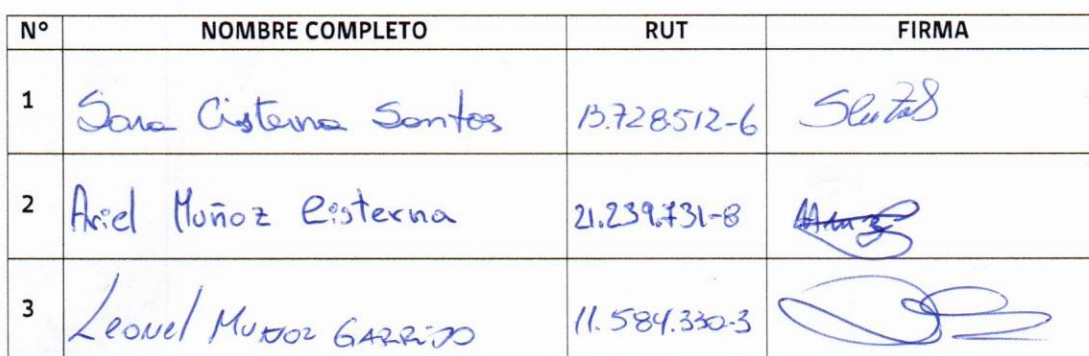 N° NOMBRE COMPLETO RUT FIRMA
1 Sara Cisterna Santos 13.728.512-6
2 Ariel Muñoz Cisterna 21.239.731-8
3 Leonel Muñoz GARRiDO 11.584.330-3